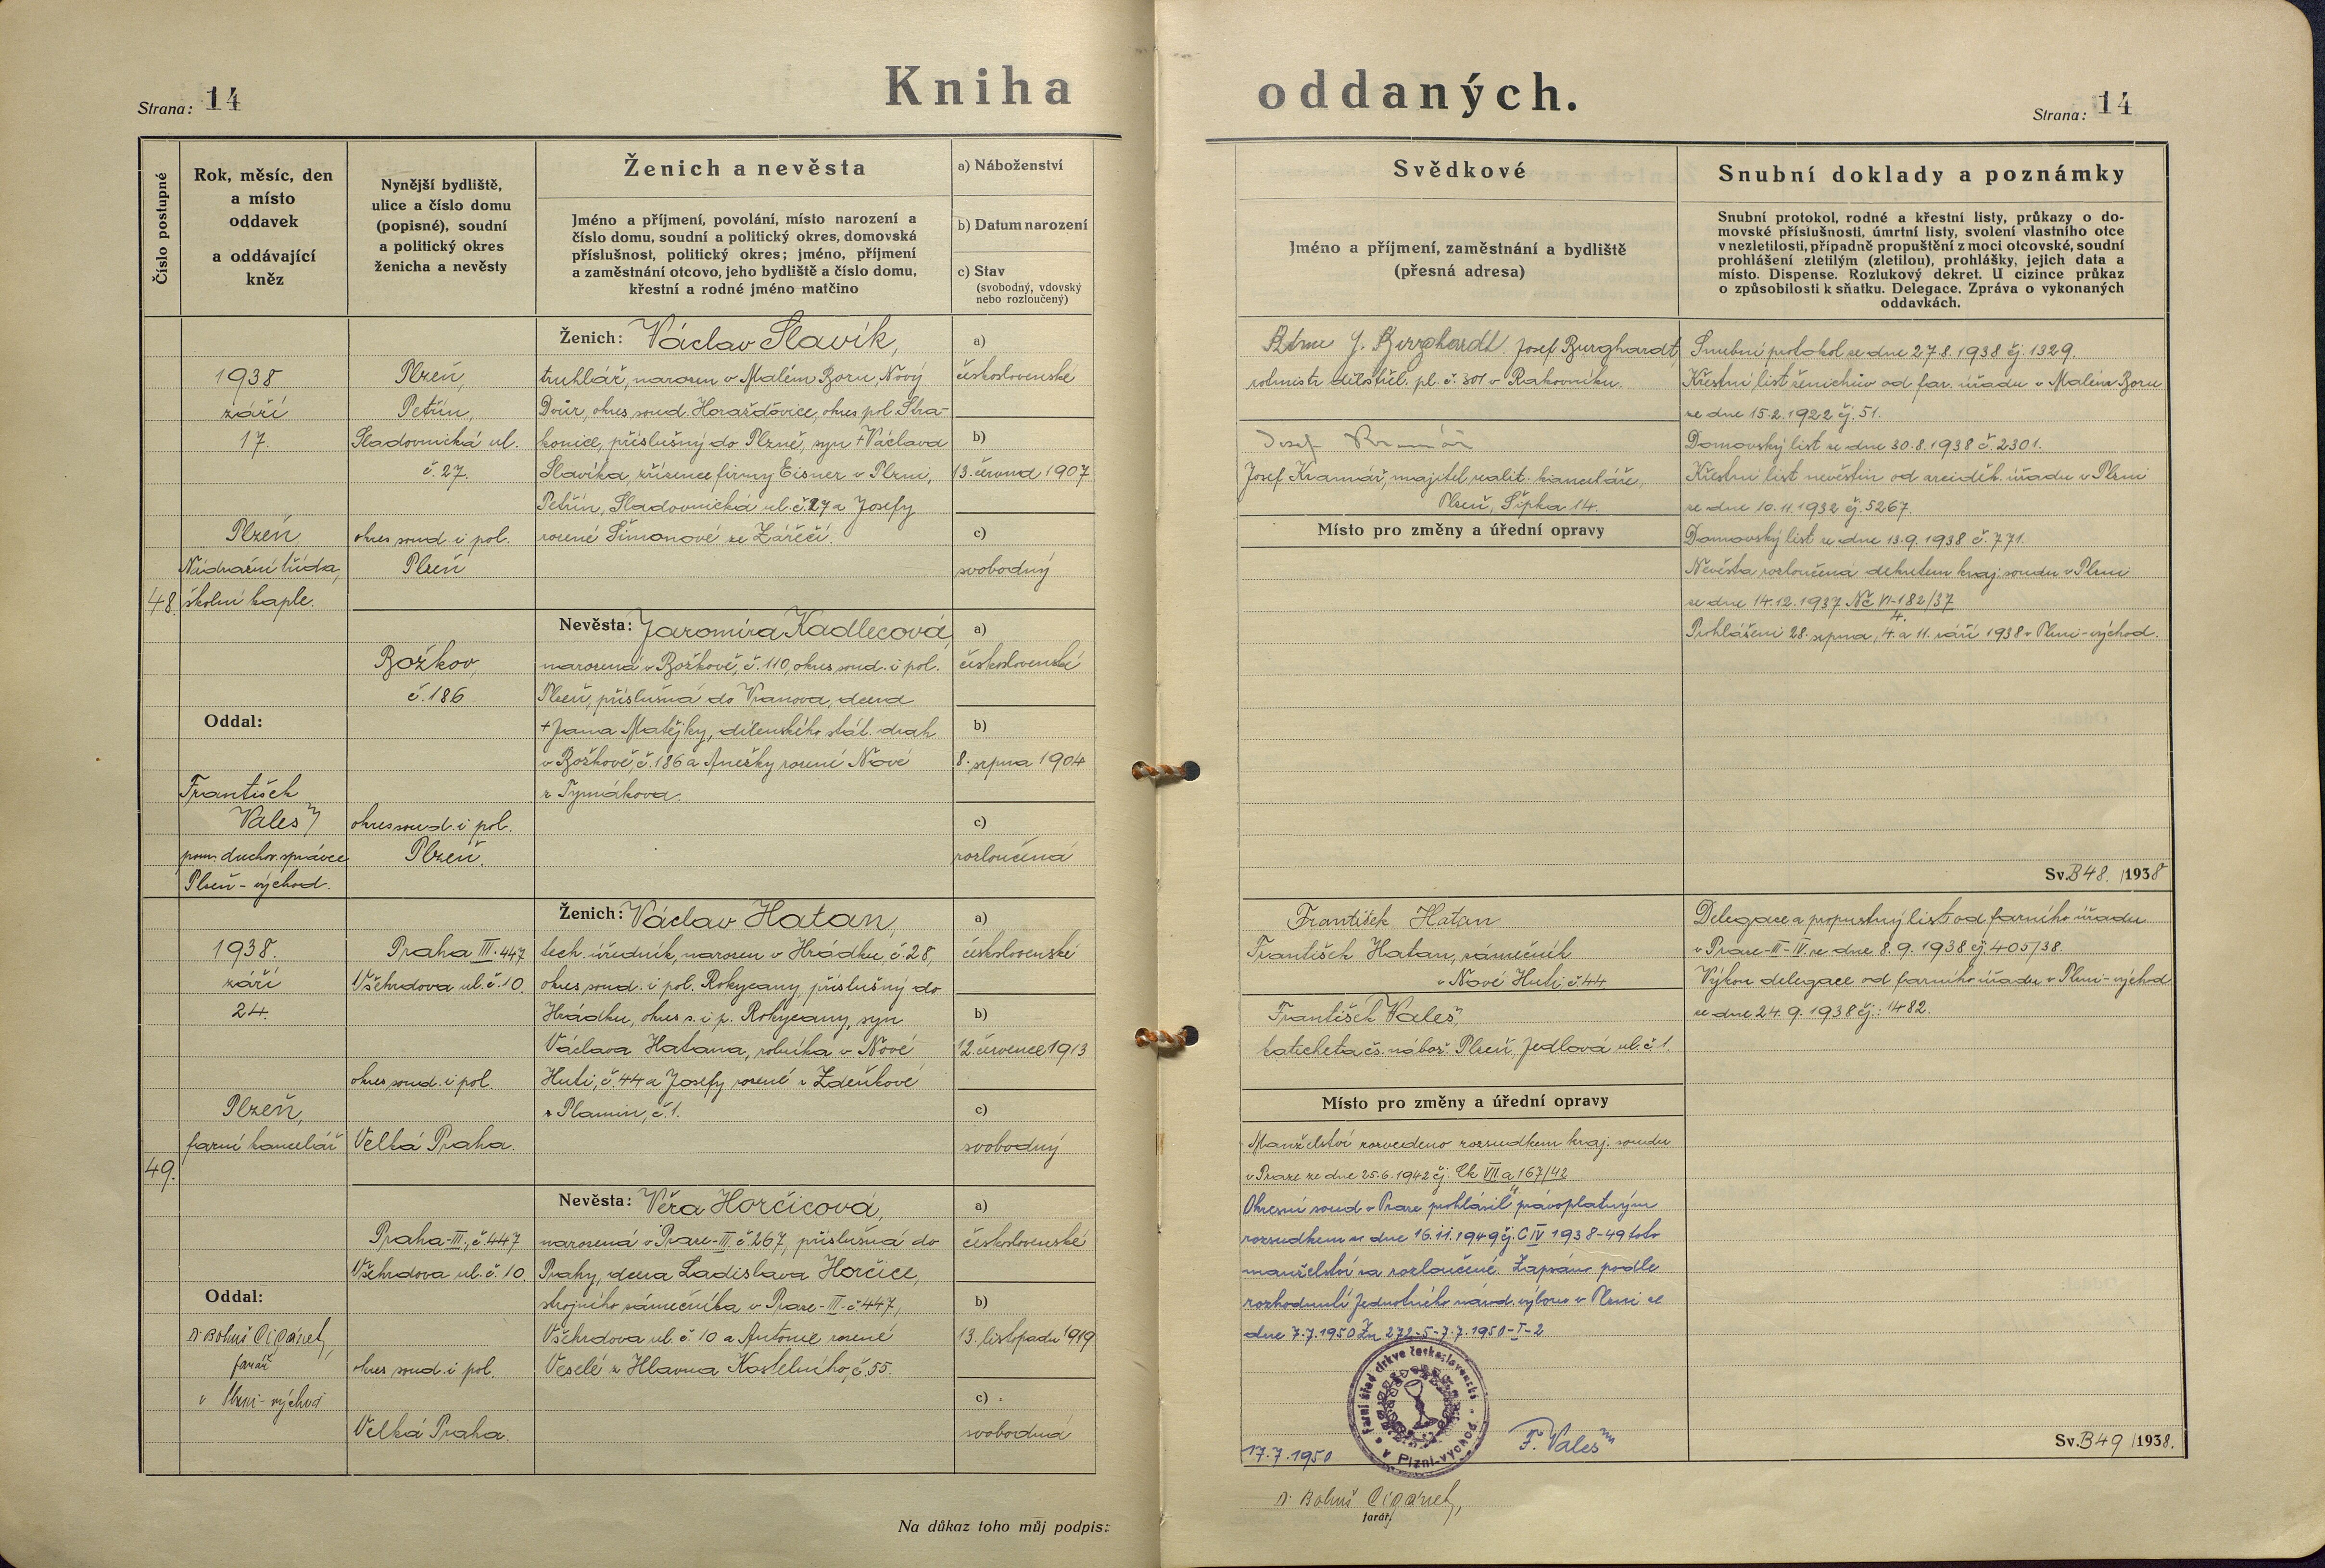 Strana: 14
Kniha oddaných.
Strana: 14
Číslo postupné
Rok, měsíc, den
a místo
oddavek
a oddávající
kněz
Nynější bydliště,
ulice a číslo domu
(popisné), soudní
a politický okres
ženicha a nevěsty
Ženich a nevěsta
Jméno a příjmení, povolání, místo narození a
číslo domu, soudní a politický okres, domovská
příslušnost, politický okres; jméno, příjmení
a zaměstnání otcovo, jeho bydliště a číslo domu,
křestní a rodné jméno matčino
a) Náboženství
b) Datum narození
c) Stav
(svobodný, vdovský
nebo rozloučený)
Svědkové
Jméno a příjmení, zaměstnání a bydliště
(přesná adresa)
Snubní doklady a poznámky
Snubní protokol, rodné a křestní listy, průkazy o do-
movské příslušnosti, úmrtní listy, svolení vlastního otce
v nezletilosti, případně propuštění z moci otcovské, soudní
prohlášení zletilým (zletilou), prohlášky, jejich data a
místo. Dispense. Rozlukový dekret. U cizince průkaz
o způsobilosti k sňatku. Delegace. Zpráva o vykonaných
oddavkách.
48.
1938
září
17.
Plzeň,
Nádražní třída,
školní kaple.
Oddal:
František
Valeš
pom. duchov. správce
Plzeň-východ.
Plzeň,
Petřín,
Sladovnická ul.
č. 27.
okres soud. i pol.
Plzeň
Božkov,
č. 186
okres soud. i pol.
Plzeň.
Ženich: Václav Slavík,
truhlář, narozen v Malém Boru, Nový
Dvůr, okres soud. Horažďovice, okres pol. Stra-
konice, příslušný do Plzně, syn + Václava
Slavíka, zřízence firmy Eisner v Plzni,
Petřín, Sladovnická ul. č. 27 a Josefy
rozené Šimonové ze Zářečí.
Nevěsta: Jaromíra Kadlecová,
narozená v Božkově, č. 110, okres soud. i pol.
Plzeň, příslušná do Vranova, dcera
+ Jana Matějky, dílenského stát. drah
v Božkově, č. 186 a Anežky rozené Nové
z Tymákova.
a)
československé
b)
13. června 1907
c)
svobodný
a)
československé
b)
8. srpna 1904
c)
rozloučená
Josef Burghardt,
rotmistr děl. pl. č. 301 v Rakovníku.
Josef Kramář
Josef Kramář, majitel realit. kanceláře,
Plzeň, Šipka 14.
Místo pro změny a úřední opravy
Snubní protokol ze dne 27.8.1938 čj. 1329.
Křestní list ženichův od far. úřadu v Malém Boru
ze dne 15.2.1922 čj. 51.
Domovský list ze dne 30.8.1938 č. 2301.
Křestní list nevěstin od arciděk. úřadu v Plzni
ze dne 10.11.1932 čj. 5267.
Domovský list ze dne 13.9.1938 č. 771.
Nevěsta rozloučená dekretem kraj. soudu v Plzni
ze dne 14.12.1937 Nč VI-182/37
4.
Prohlášeni 28. srpna, 4. a 11. září 1938 v Plzni-východ.
Sv. B 48. /1938
49.
1938.
září
24.
Plzeň,
farní kancelář
Oddal:
Dr Bohuš Cigánek,
farář
v Plzni-východ
Praha III. 447
Všehrdova ul. č. 10.
okres soud. i pol.
Velká Praha.
Praha-III, č. 447
Všehrdova ul. č. 10.
okres soud. i pol.
Velká Praha.
Ženich: Václav Hatan,
tech. úředník, narozen v Hrádku, č. 28,
okres soud. i pol. Rokycany, příslušný do
Hrádku, okres s. i p. Rokycany, syn
Václava Hatana, rolníka v Nové
Huti, č. 44 a Josefy rozené Zdeňkové
z Plamin, č. 1.
Nevěsta: Věra Horčicová,
narozená v Praze-II, č. 267, příslušná do
Prahy, dcera Ladislava Horčice,
strojního zámečníka v Praze-III-č. 447,
Všehrdova ul. č. 10 a Antonie rozené
Veselé z Hlavna Kostelního, č. 55.
a)
československé
b)
12. července 1913
c)
svobodný
a)
československé
b)
13. listopadu 1919
c)
svobodná
František Hatan
František Hatan, zámečník
v Nové Huti, č. 44
František Valeš,
katecheta čs. nábož. Plzeň, Jedlová ul. č. 1.
Místo pro změny a úřední opravy
Manželství rozvedeno rozsudkem kraj. soudu
v Praze ze dne 25.6.1942 čj. Ck VII a 167/42
4
Okresní soud v Praze prohlásil právoplatným
rozsudkem ze dne 16.11.1949 čj. C IV 1938-49 toto
manželství za rozloučené. Zapsáno podle
rozhodnutí Jednotného národ. výboru v Plzni ze
dne 7.7.1950 Zn 272-5-7.7.1950-I-2
Farní úřad církve československé v Plzni-východ
17.7.1950
F. Valeš
Dr Bohuš Cigánek,
farář.
Delegace a propustný list od farního úřadu
v Praze-III-IV. ze dne 8.9.1938 čj. 405/38.
Výkon delegace od farního úřadu v Plzni-východ
ze dne 24.9.1938 čj.: 1482.
Sv. B 49 /1938.
Na důkaz toho můj podpis: